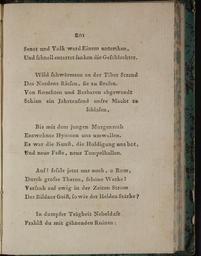 201
Senat und Volk ward Einem unterthan,
Und schnell entartet sanken die Geschlechter.
Wild schwärmten an der Tiber Strand
Des Nordens Riesen, sie zu
Von Römchen und Barbaren abgewandt
Schien ein Jahrtausend unsre Macht zu
Schlafen,
Bis mit dem jungen Morgenroth
Erwachte Hymnen uns umwallten.
Es war die Kunst, die Huldigung uns bot,
Und neue Feste, neue Tempelhallen.
Auf! fessle jetzt uns noch, o Rom,
Durch große Thaten, schöne Werke!
Versuch auf ewig in der Zeiten Strom
Der Bildner Geist, so wie der Helden Stärke?
In dumpfer Trägheit Nebelduft
Prahlst du mit gähnenden Ruinen: